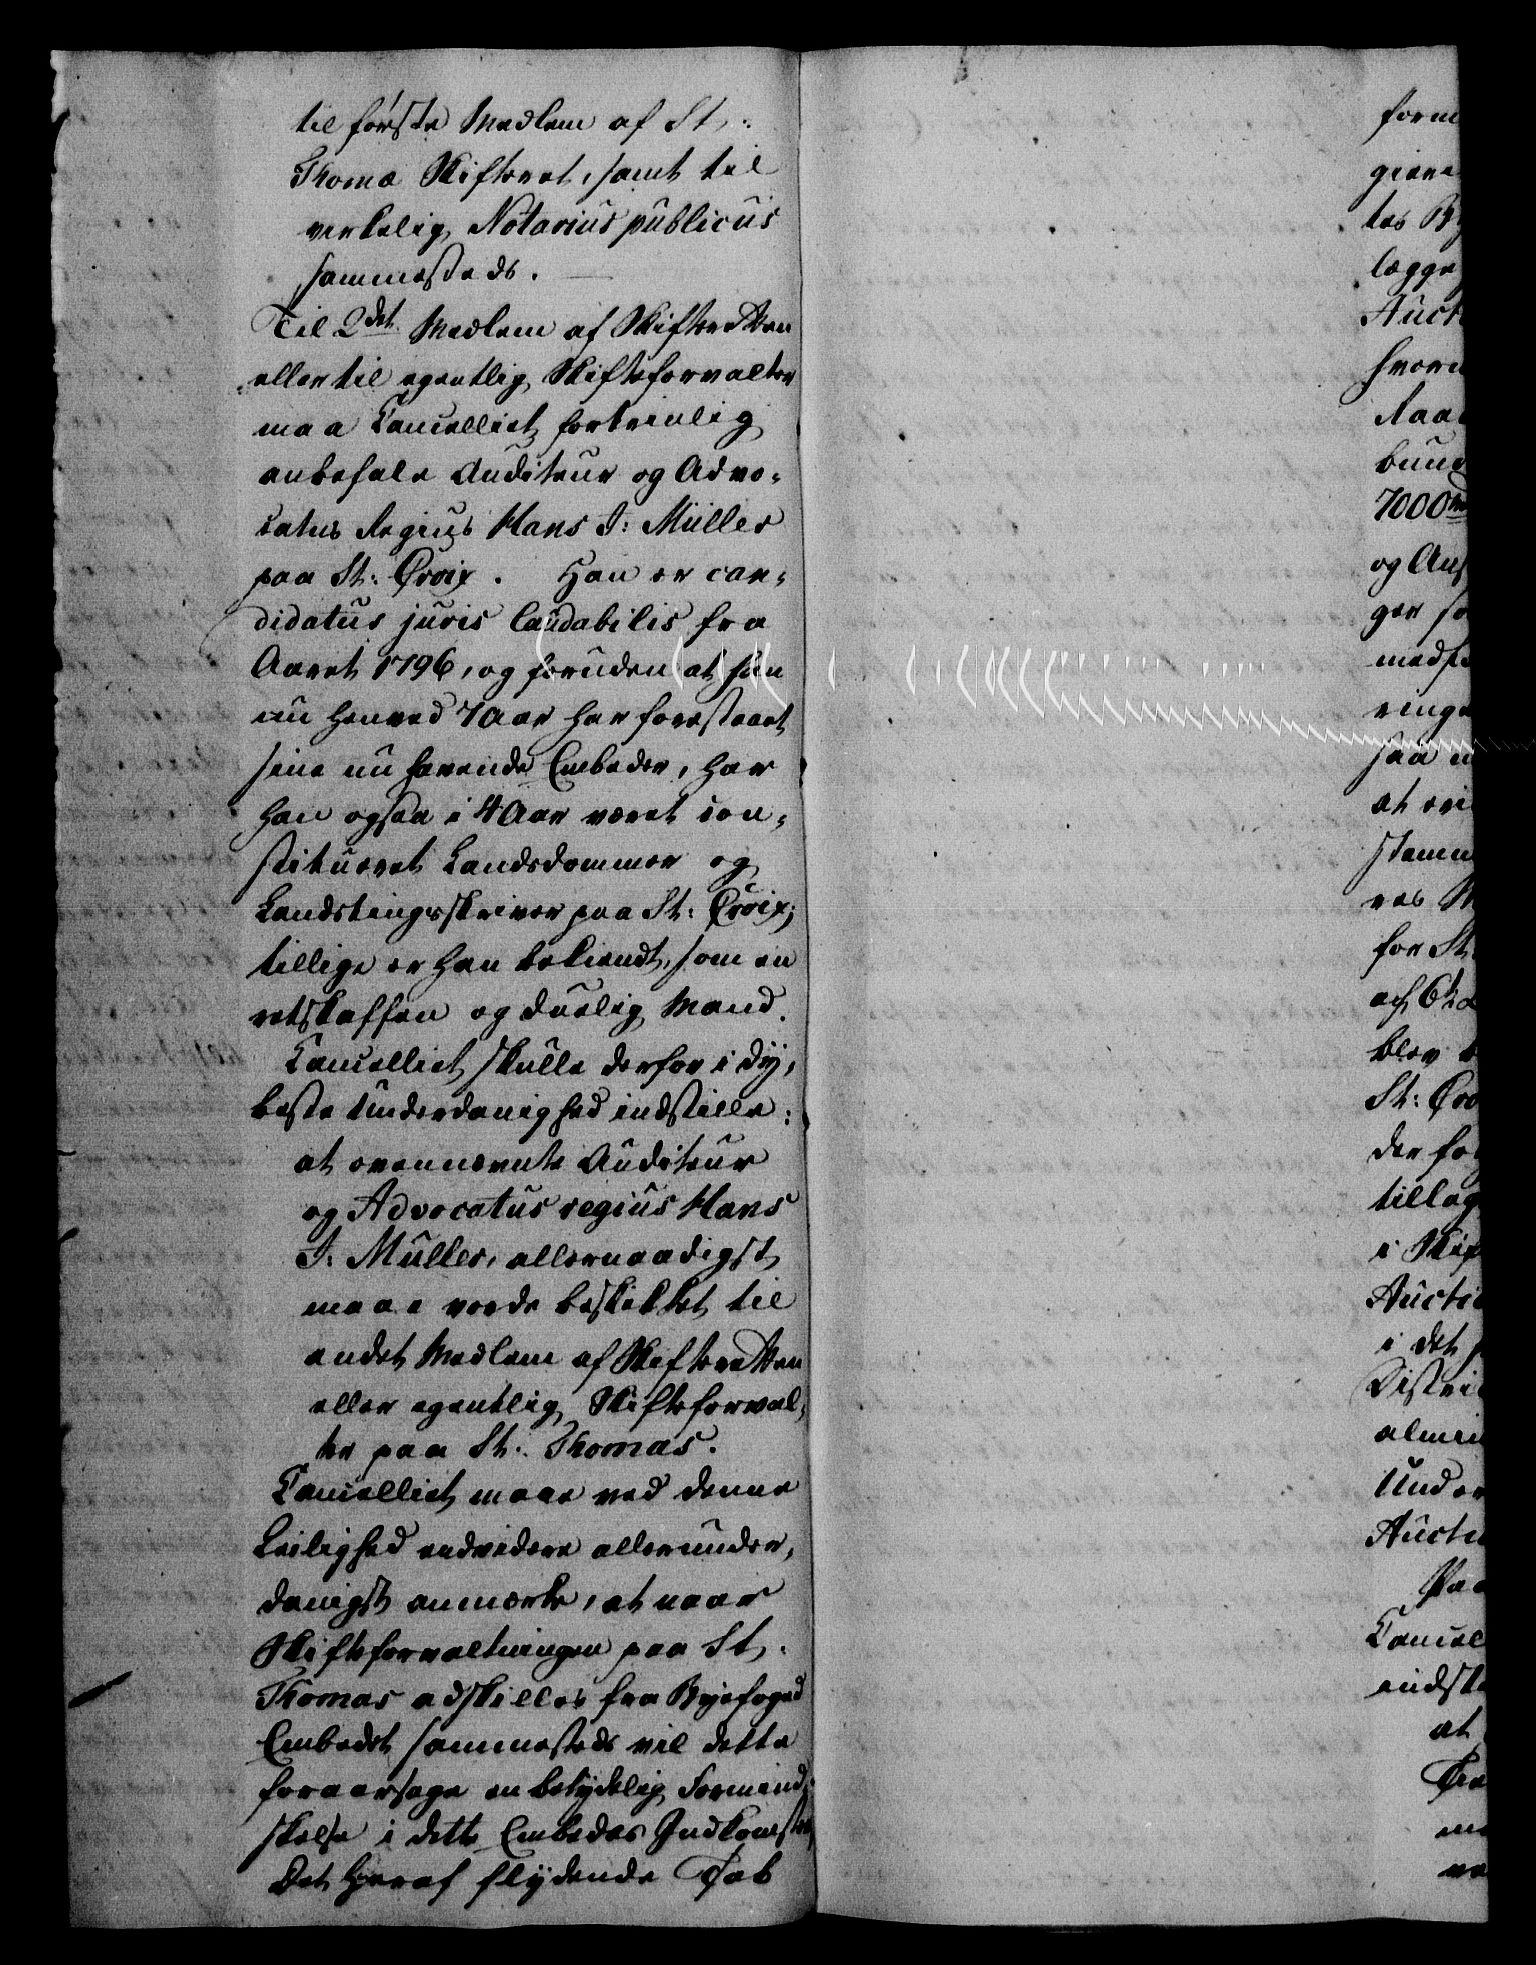 til første Medlem af St:
Thomæ Skifteret, samt til
virkelig Notarius publicus
sammesteds.
Til 2det Medlem af Skifteretten
eller til egentlig Skifteforvalter
maa Cancelliet fortrinlig
anbefale Auditeur og Advo-
catus Regius Hans J: Müller
paa St: Croix. Han er can-
didatus juris laudabilis fra
Aaret 1796, og foruden at han
nu henved 7 Aar har forestaaet
sine nu havende Embeder, har
han ogsaa i 4 Aar været con-
stitueret Landsdommer og
Landstingsskriver paa St: Croix;
tillige er han bekiendt, som en
retskaffen og duelig Mand.
Cancelliet skulle derfor i dy-
beste Underdanighed indstille:
at ovennævnte Auditeur
og Advocatus regius Hans
J: Müller, allernaadigst
maae vorde beskikket til
andet Medlem af Skifteretten
eller egentlig Skifteforval-
ter paa St: Thomas.
Cancelliet maae ved denne
Leilighed endvidere allerunder-
danigst anmærke, at naar
Skifteforvaltningen paa St:
Thomas adskilles fra Byefoged
Embedet sammesteds vil dette
foraarsage en betydelig Formind-
skelse i dette Embedes Indkomster
Det heraf flydende Tab
form
giere
tes
lægge
Auct
hvor
Raa
7000
og
ger
at
for St:
blev
St: Cro
der for
tillag
i
Auctio
i det
Distri
almin
Under
Auctio
Paa
Cancel
indst
at